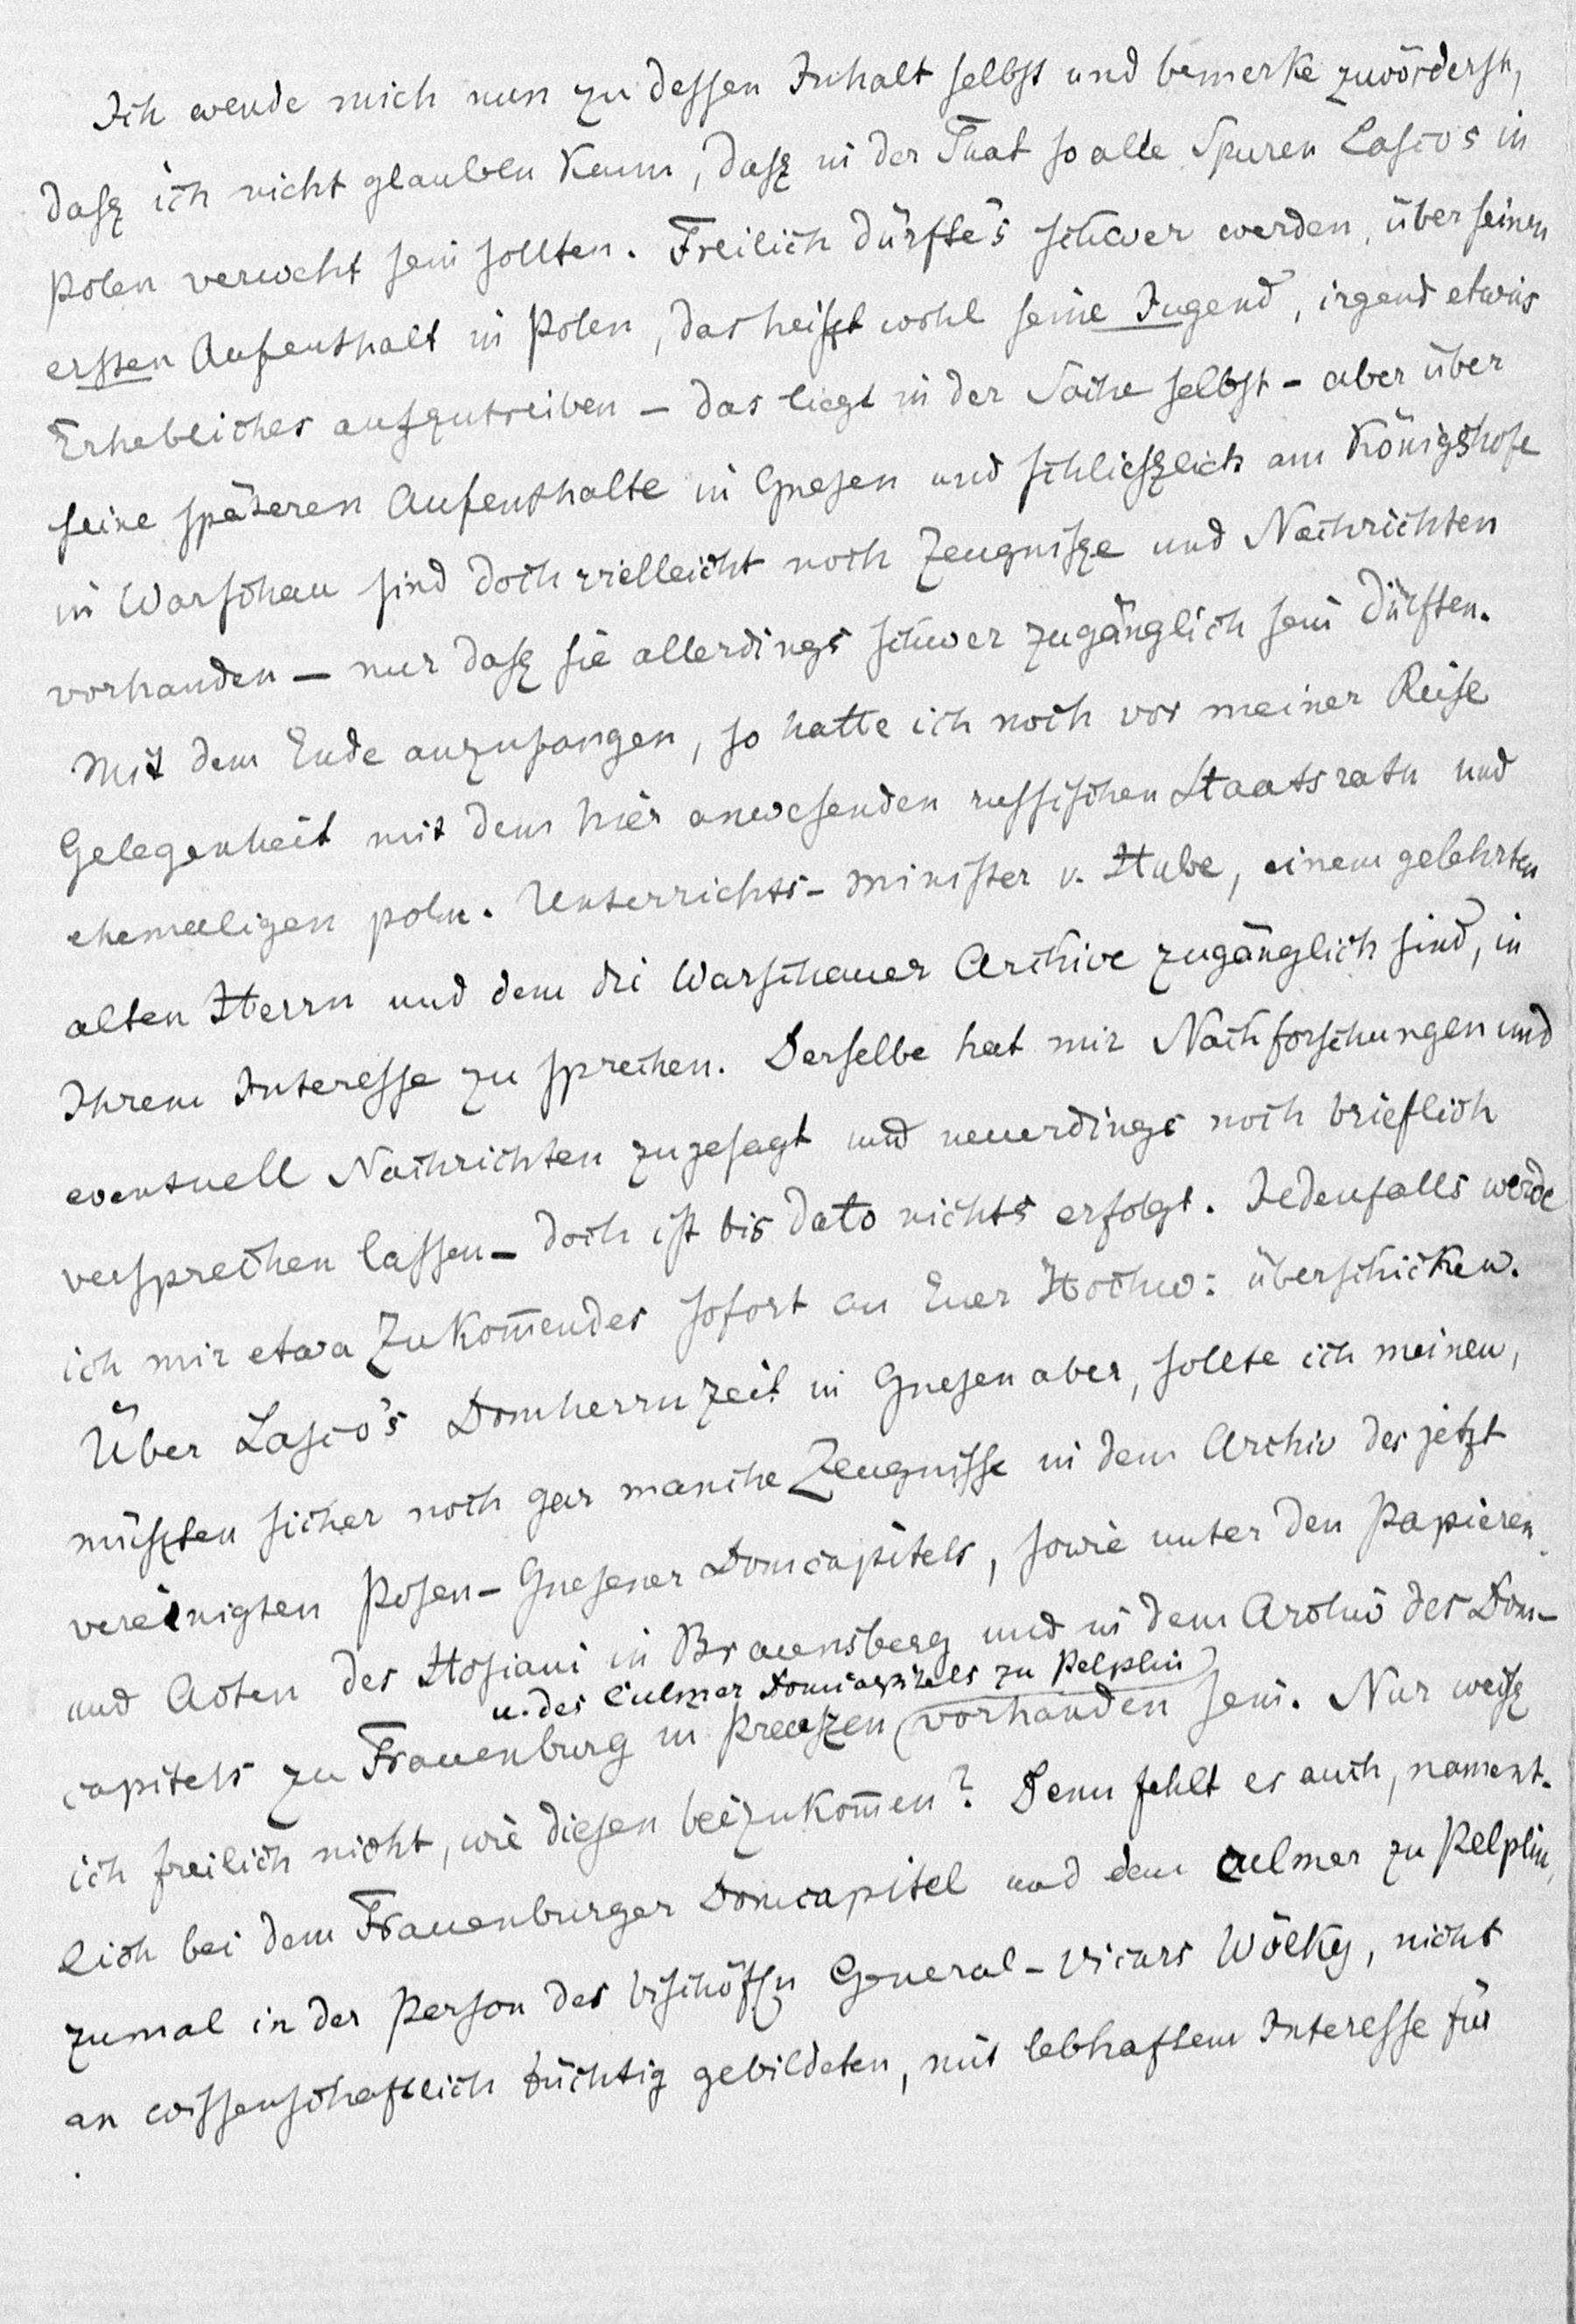 Ich wende mich nun zu dessen Inhalt selbst und bemerke zuvörderst,
dasz ich nicht glauben kann, dasz in der That so alle Spuren Lasco's in
Polen verweht sein sollten. Freilich dürfte's schwer werden, über seinen
ersten Aufenthalt in Polen, das heiszt wohl seine Jugend, irgend etwas
Erhebliches aufzutreiben – das liegt in der Sache selbst – aber über
seine späteren Aufenthalte in Gnesen und schlieszlich am Königshofe
in Warschau sind doch vielleicht noch Zeugnisze und Nachrichten
vorhanden – nur dasz sie allerdings schwer zugänglich sein dürften.
Mit dem Ende anzufangen, so hatte ich noch vor meiner Reise
Gelegenheit mit dem hier anwesenden russischen Staatsrath und
ehemaligen poln. Unterrichts-Minister v. Hube, einem gelehrten
alten Herrn und dem die Warschauer Archive zugänglich sind, in
Ihrem Interesse zu sprechen. Derselbe hat mir Nachforschungen und
eventuell Nachrichten zugesagt und neuerdings noch brieflich
versprechen lassen – doch ist bis dato nichts erfolgt. Jedenfalls werde
ich mir etwa Zukom̄endes sofort an Euer Hochw: überschicken.
Über Lasco's Domherrnzeit in Gnesen aber, sollte ich meinen,
müszten sicher noch gar manche Zeugnisse in dem Archiv des jetzt
vereinigten Posen-Gnesener Domcapitels, sowie unter den Papieren
und Acten des Hosiani in Braunsberg und in dem Archiv des Dom-
u. des Culmer Domcapitels zu Pelplin
capitels zu Frauenburg in Preuszen vorhanden sein. Nur weisz
ich freilich nicht, wie diesen beizukom̄en? Denn fehlt es auch, nament-
lich bei dem Frauenburger Domcapitel und dem Culmer zu Pelplin,
zumal in der Person des bischöfln General-Vicars Wölky, nicht
an wissenschaftlich tüchtig gebildeten, mit lebhaftem Interesse für